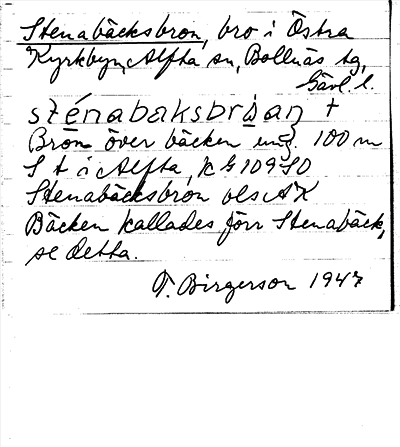 Stenabäcksbron, bro i Östra
Kyrkbyn, Alfta sn, Bollnäs tg,
Gävl. l.
sténabaksbrọaŋ +
Bron över bäcken ung. 100 m
S t i Alfta, K G 109 SO
Stenabäcksbron
Bäcken kallades förr Stenabäck,
se detta.
T. Birgerson 1947